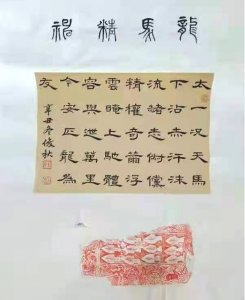 龍馬精神
太一况天馬
下沾赤汗沫
流赭志俶儻
精權奇籋浮
雲晻上馳體
容與迣萬里
今安匹龍為
友
辛丑